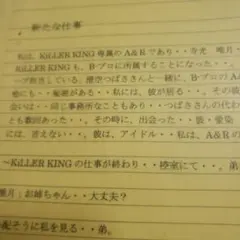 新たな仕事
私は、KiLLER KING 専属の A&R であり・・寺光 唯月・
KiLLER KING も、B-プロに所属することになった・・
ープ担当している、澄空つばささんと一緒に、B-プロの A
他にも・・秘密がある・・私には、彼が居る・・、その彼
会いは・・同じ事務所なこともあり・・つばささんの代わ
とも数回あった・・、その時に、出会った・・装・愛染
には、言えない・・、彼は、アイドル・・私は、A&R の
～KiLLER KING の仕事が終わり・・控室にて・・、弟、
月：お姉ちゃん・・大丈夫？
配そうに私を見る・・弟、